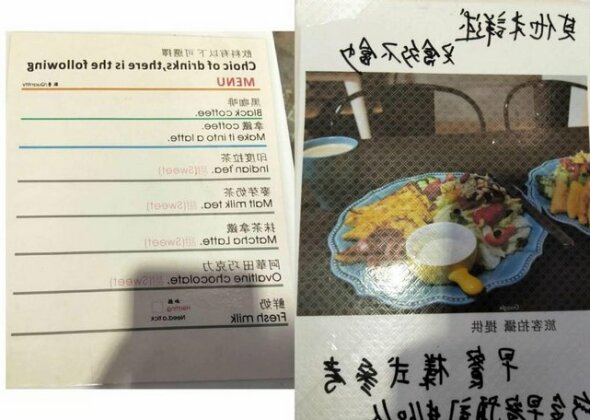 飲料有以下可選擇
Choic of drinks,there is the following
MENU
數量/Quantity
黑咖啡
Black coffee.
拿鐵 coffee.
Make it into a latte.
印度拉茶
Indian tea. 甜(Sweet)
麥芽奶茶
Malt milk tea. 甜(Sweet)
抹茶拿鐵
Matcha Latte. 甜(Sweet)
阿華田巧克力
Ovaltine chocolate. 甜(Sweet)
鮮奶
Fresh milk
加熱
Heating
Need.a tick
其他未詳述
Google
旅客拍攝 提供
早餐樣式參考